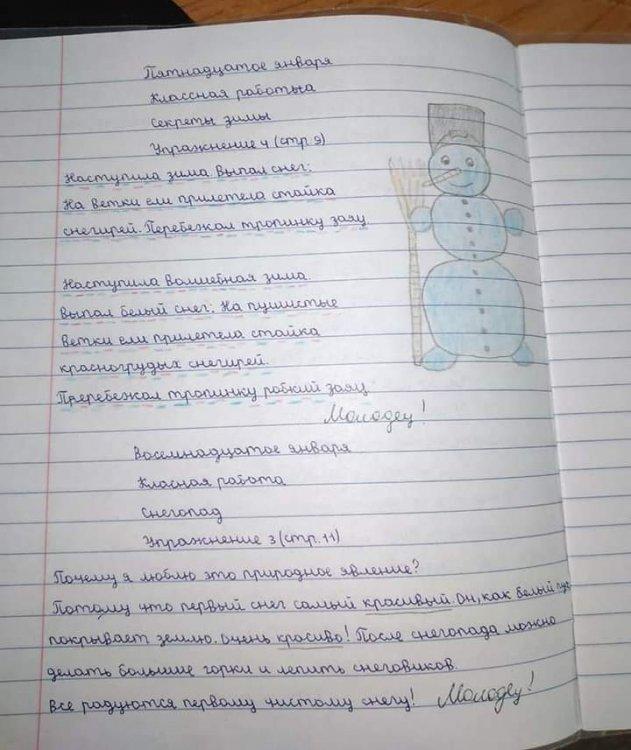 Пятнадцатое января
Классная работьа
Секреты зимы
Упражнение 4 (стр 9)
Наступила зима. Выпал снег.
На ветки ели прилетела стайка
снегирей. Перебежал тропинку заяц
Наступила волшебная зима.
Выпал белый снег. На пушистые
ветки ели прилетела стайка
красногрудых снегирей.
Преребежал тропинку робкий заяц
Молодец!
Восемнадцатое января
Класная работа
Снегопад
Упражнение 3 (стр. 11)
Почему я люблю это природное явление?
Потому что первый снег самый красивый он, как белый пух
покрывает землю. очень красиво! После снегопада можно
делать большие горки и лепить снеговиков.
Все радуются первому чистому снегу! Молодец!